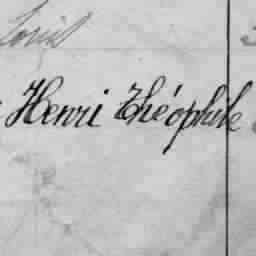 Louis
Henri Théophile